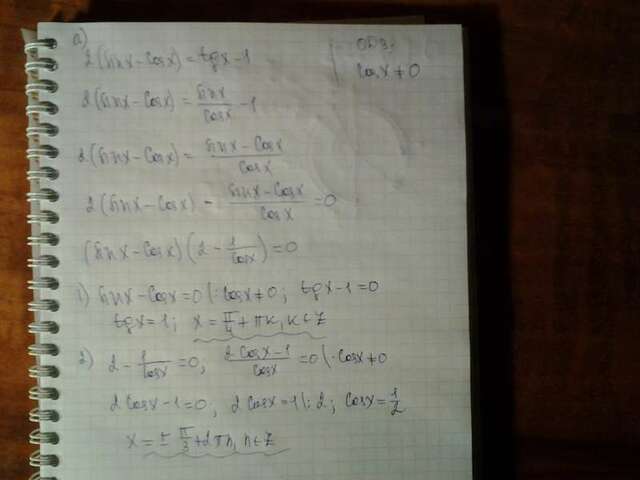 а)
2(sinx-cosx)=tgx-1
ОДЗ:
cosx≠0
2(sinx-cosx)=sinx/cosx-1
2(sinx-cosx)=(sinx-cosx)/cosx
2(sinx-cosx)-(sinx-cosx)/cosx=0
(sinx-cosx)(2-1/cosx)=0
1) sinx-cosx=0 |:cosx≠0; tgx-1=0
tgx=1; x=π/4+πk, k∈Z
2) 2-1/cosx=0, (2cosx-1)/cosx=0 |·cosx≠0
2cosx-1=0; 2cosx=1 |:2; cosx=1/2
x=±π/3+2πn, n∈Z